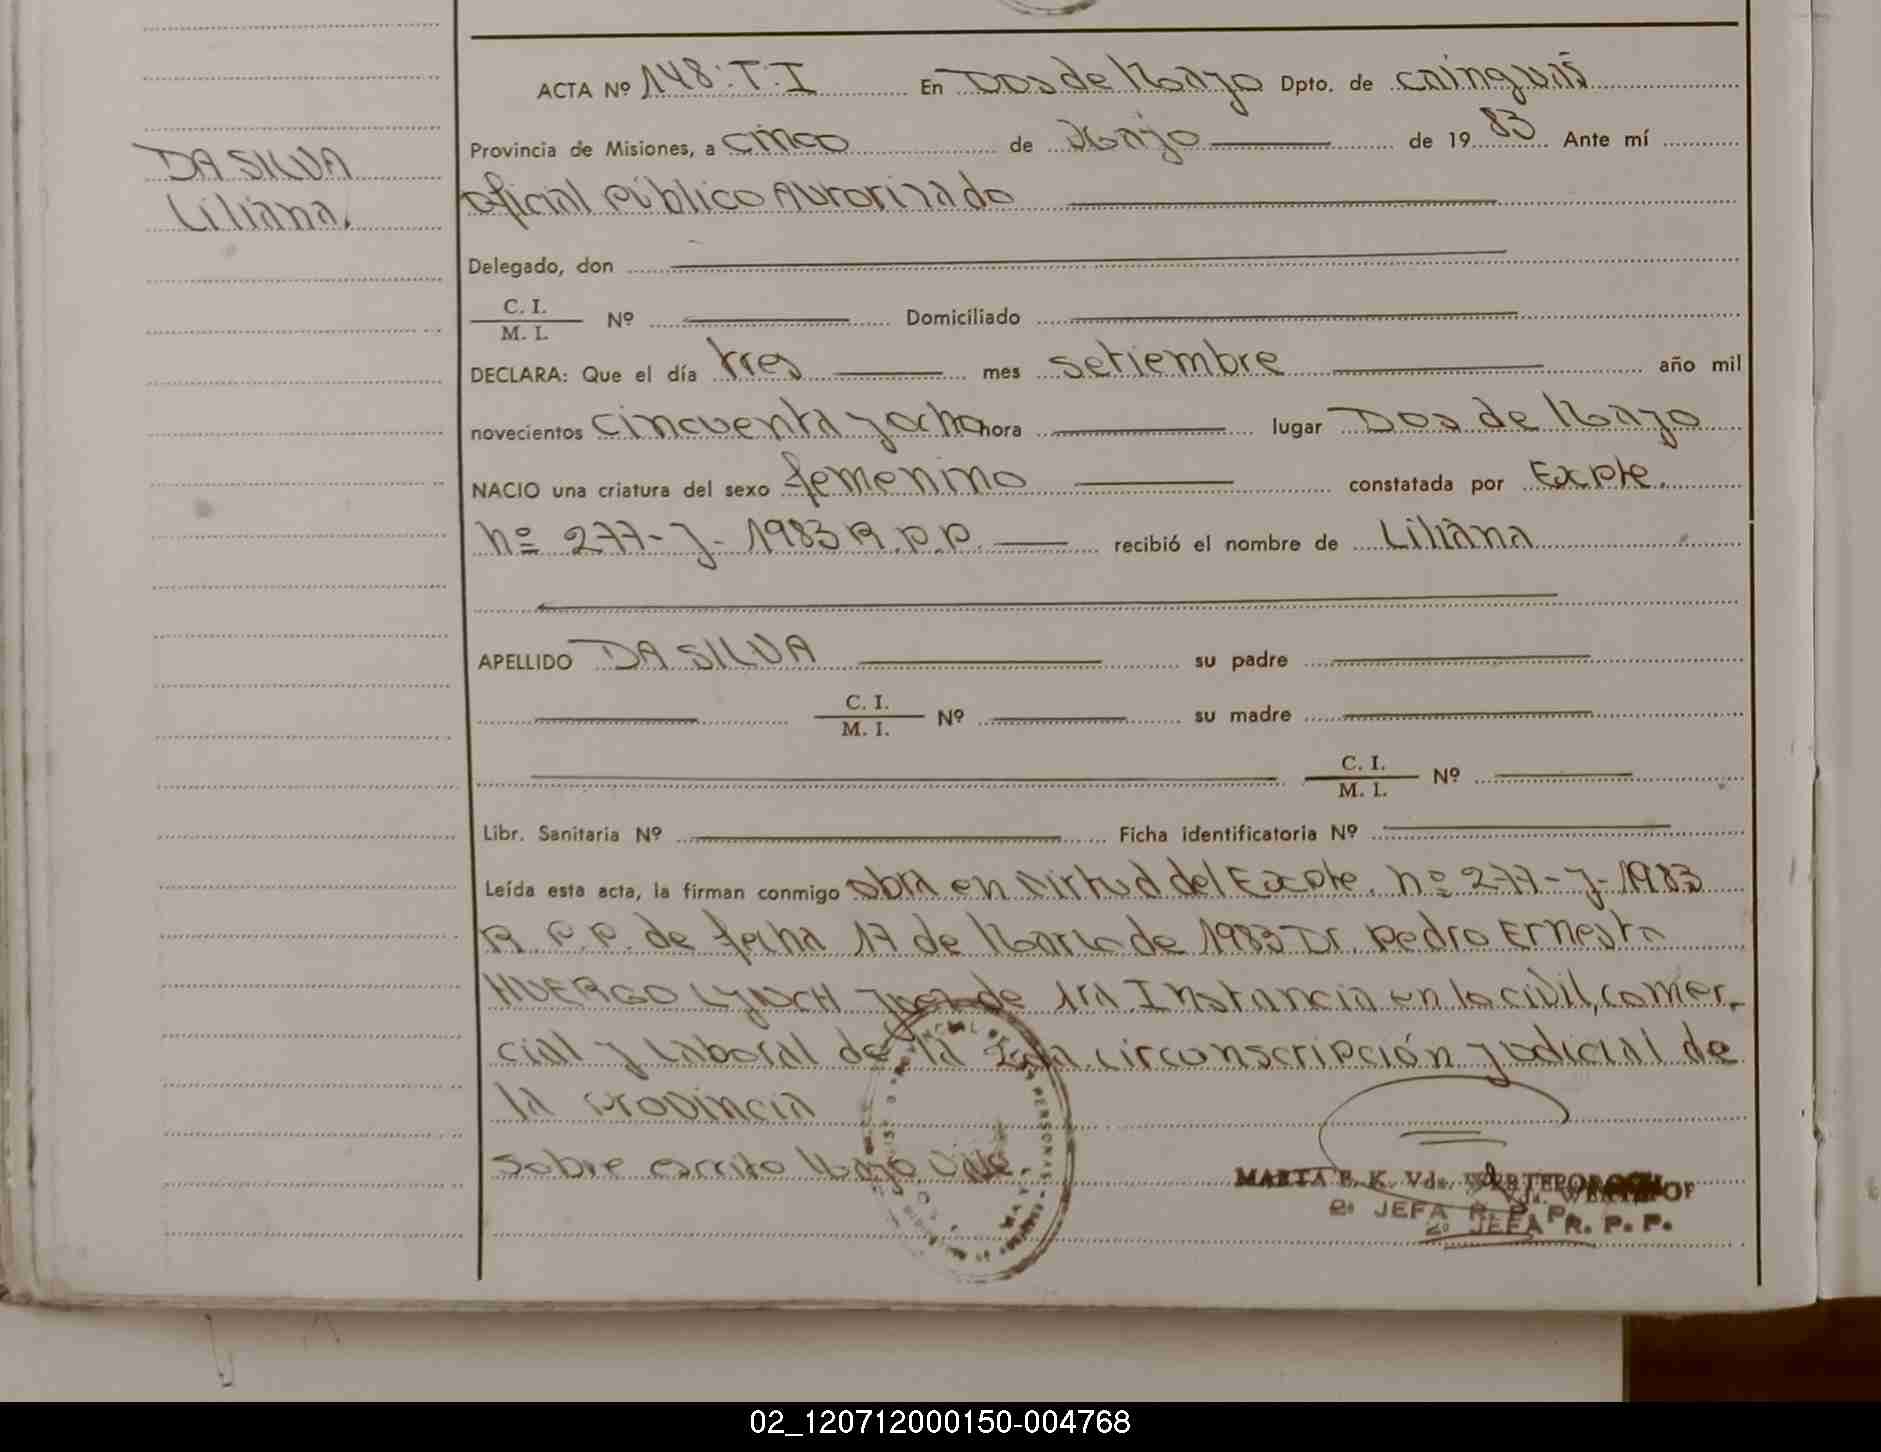 ACTA Nº 148:T:I En Dos de Mayo Dpto. de Cainguás
Provincia de Misiones, a cinco de Mayo de 1983 Ante mí
DA SILVA
Liliana.
oficial público Autorizado
Delegado, don
C. I.
M. I. Nº Domiciliado
DECLARA: Que el día tres mes setiembre año mil
novecientos cincuenta y ocho hora lugar Dos de Mayo
NACIO una criatura del sexo femenino constatada por Expte.
nº 277-J-1983 R.P.P. recibió el nombre de Liliana
APELLIDO DA SILVA su padre
C. I.
M. I. Nº su madre
C. I.
M. I. Nº
Libr. Sanitaria Nº Ficha identificatoria Nº
Leída esta acta, la firman conmigo obra en virtud del Expte. nº 277-J-1983
R.P.P. de fecha 17 de Marzo de 1983 Dr. Pedro Ernesto
HUERGO LYNCH Juez de 1ra Instancia en lo civil, comer-
cial y Laboral de la 2da. circonscripción judicial de
la provincia
Sobre escrito Mayo Vale.
MARTA E. K. Vda.
2º JEFA R. P. P.
2º JEFA R. P. P.
02_120712000150-004768